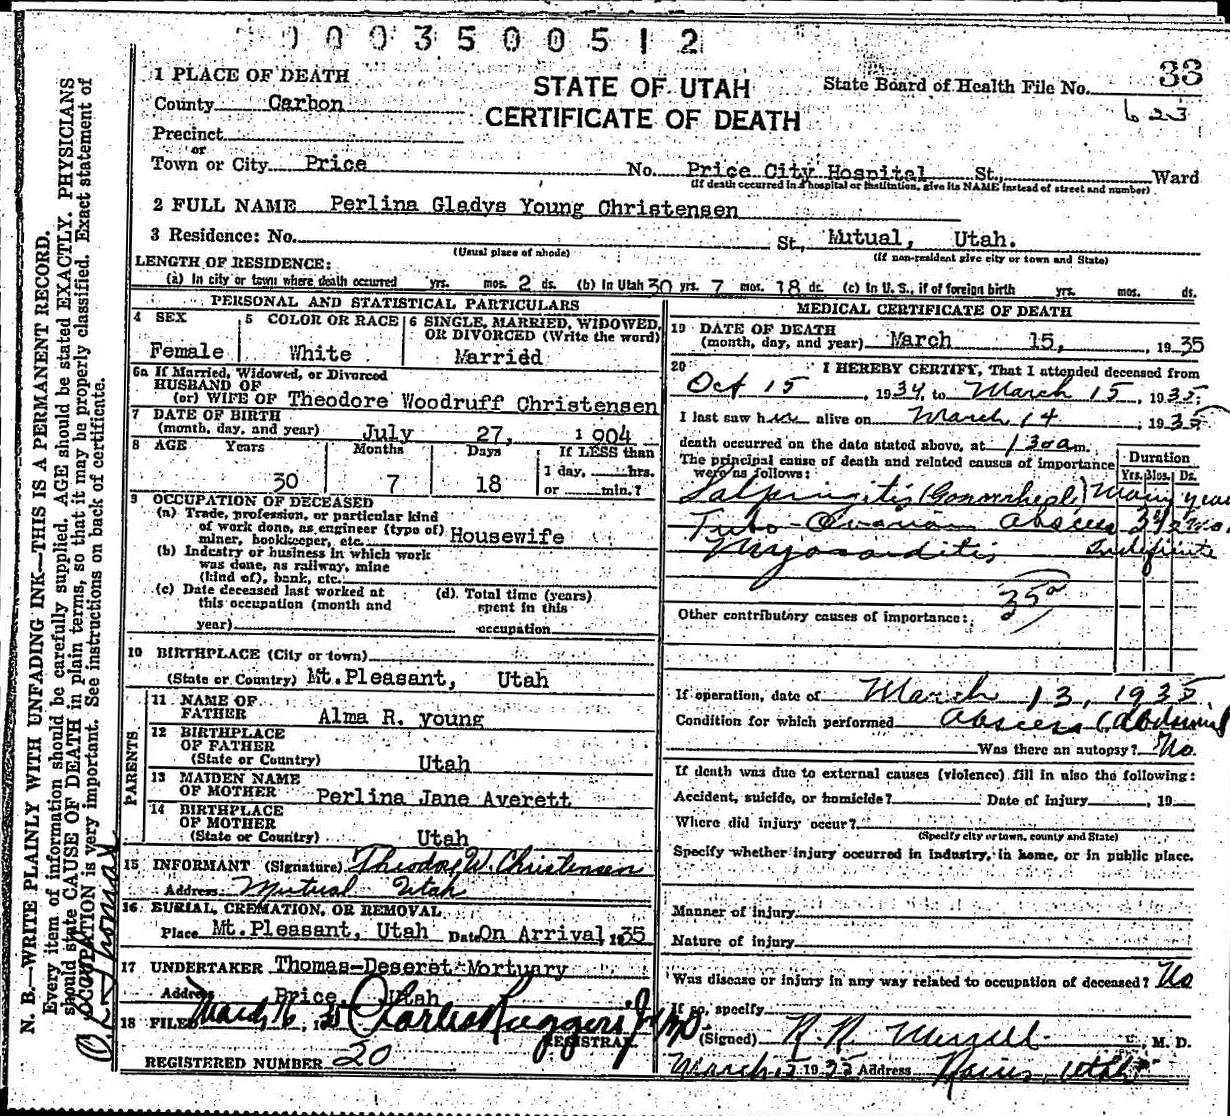 0003500512
33
1 PLACE OF DEATH
STATE OF UTAH
State Board of Health File No.
County Carbon
CERTIFICATE OF DEATH
623
Precinct
or
Town or City Price No. Price City Hospital St., Ward
(If death occurred in a hospital or institution, give its NAME instead of street and number)
2 FULL NAME Perlina Gladys Young Christensen
3 Residence: No. St., Mutual, Utah.
(Usual place of abode) (If non-resident give city or town and State)
LENGTH OF RESIDENCE:
(a) In city or town where death occurred yrs. mos. 2 ds. (b) In Utah 30 yrs. 7 mos. 18 ds. (c) In U. S., if of foreign birth yrs. mos. ds.
PERSONAL AND STATISTICAL PARTICULARS
4 SEX Female
5 COLOR OR RACE White
6 SINGLE, MARRIED, WIDOWED, OR DIVORCED (Write the word) Married
6a If Married, Widowed, or Divorced
HUSBAND OF
(or) WIFE OF Theodore Woodruff Christensen
7 DATE OF BIRTH
(month, day, and year) July 27, 1904
8 AGE Years Months Days If LESS than
30 7 18 1 day, hrs.
or min.?
9 OCCUPATION OF DECEASED
(a) Trade, profession, or particular kind
of work done, as engineer (type of)
miner, bookkeeper, etc. Housewife
(b) Industry or business in which work
was done, as railway, mine
(kind of), bank, etc.
(c) Date deceased last worked at
this occupation (month and
year)
(d). Total time (years)
spent in this
occupation
10 BIRTHPLACE (City or town)
(State or Country) Mt.Pleasant, Utah
PARENTS
11 NAME OF
FATHER Alma R. young
12 BIRTHPLACE
OF FATHER
(State or Country) Utah
13 MAIDEN NAME
OF MOTHER Perlina Jane Averett
14 BIRTHPLACE
OF MOTHER
(State or Country) Utah
15 INFORMANT (Signature) Theodore W. Christensen
Address Mutual Utah
16 BURIAL, CREMATION, OR REMOVAL
Place Mt.Pleasant, Utah Date On Arrival 1935
17 UNDERTAKER Thomas-Deseret-Mortuary
Address Price, Utah
18 FILED March 16, 1935 Charles Ruggeri Jr MD
REGISTRAR
REGISTERED NUMBER 20
MEDICAL CERTIFICATE OF DEATH
19 DATE OF DEATH
(month, day, and year) March 15, , 1935
20 I HEREBY CERTIFY, That I attended deceased from
Oct 15, 1934, to March 15, 1935;
I last saw her alive on March 14, 1935
death occurred on the date stated above, at 130am.
The principal cause of death and related causes of importance
were as follows:
Duration
Yrs. Mos. Ds.
Salpingitis (Gonorrheal) Many years
Tubo-Ovarian abscess
Myocarditis Indefinite
35a
Other contributory causes of importance:
If operation, date of March 13, 1935
Condition for which performed Abscess (abdominal
Was there an autopsy? No.
If death was due to external causes (violence) fill in also the following:
Accident, suicide, or homicide? Date of injury , 19
Where did injury occur?
(Specify city or town, county and State)
Specify whether injury occurred in industry, in home, or in public place.
Manner of injury
Nature of injury
Was disease or injury in any way related to occupation of deceased? No
If so, specify
(Signed) , M. D.
March 15 1935 Address Hains, Utah
N. B.—WRITE PLAINLY WITH UNFADING INK—THIS IS A PERMANENT RECORD.
Every item of information should be carefully supplied. AGE should be stated EXACTLY. PHYSICIANS
should state CAUSE OF DEATH in plain terms, so that it may be properly classified. Exact statement of
OCCUPATION is very important. See instructions on back of certificate.